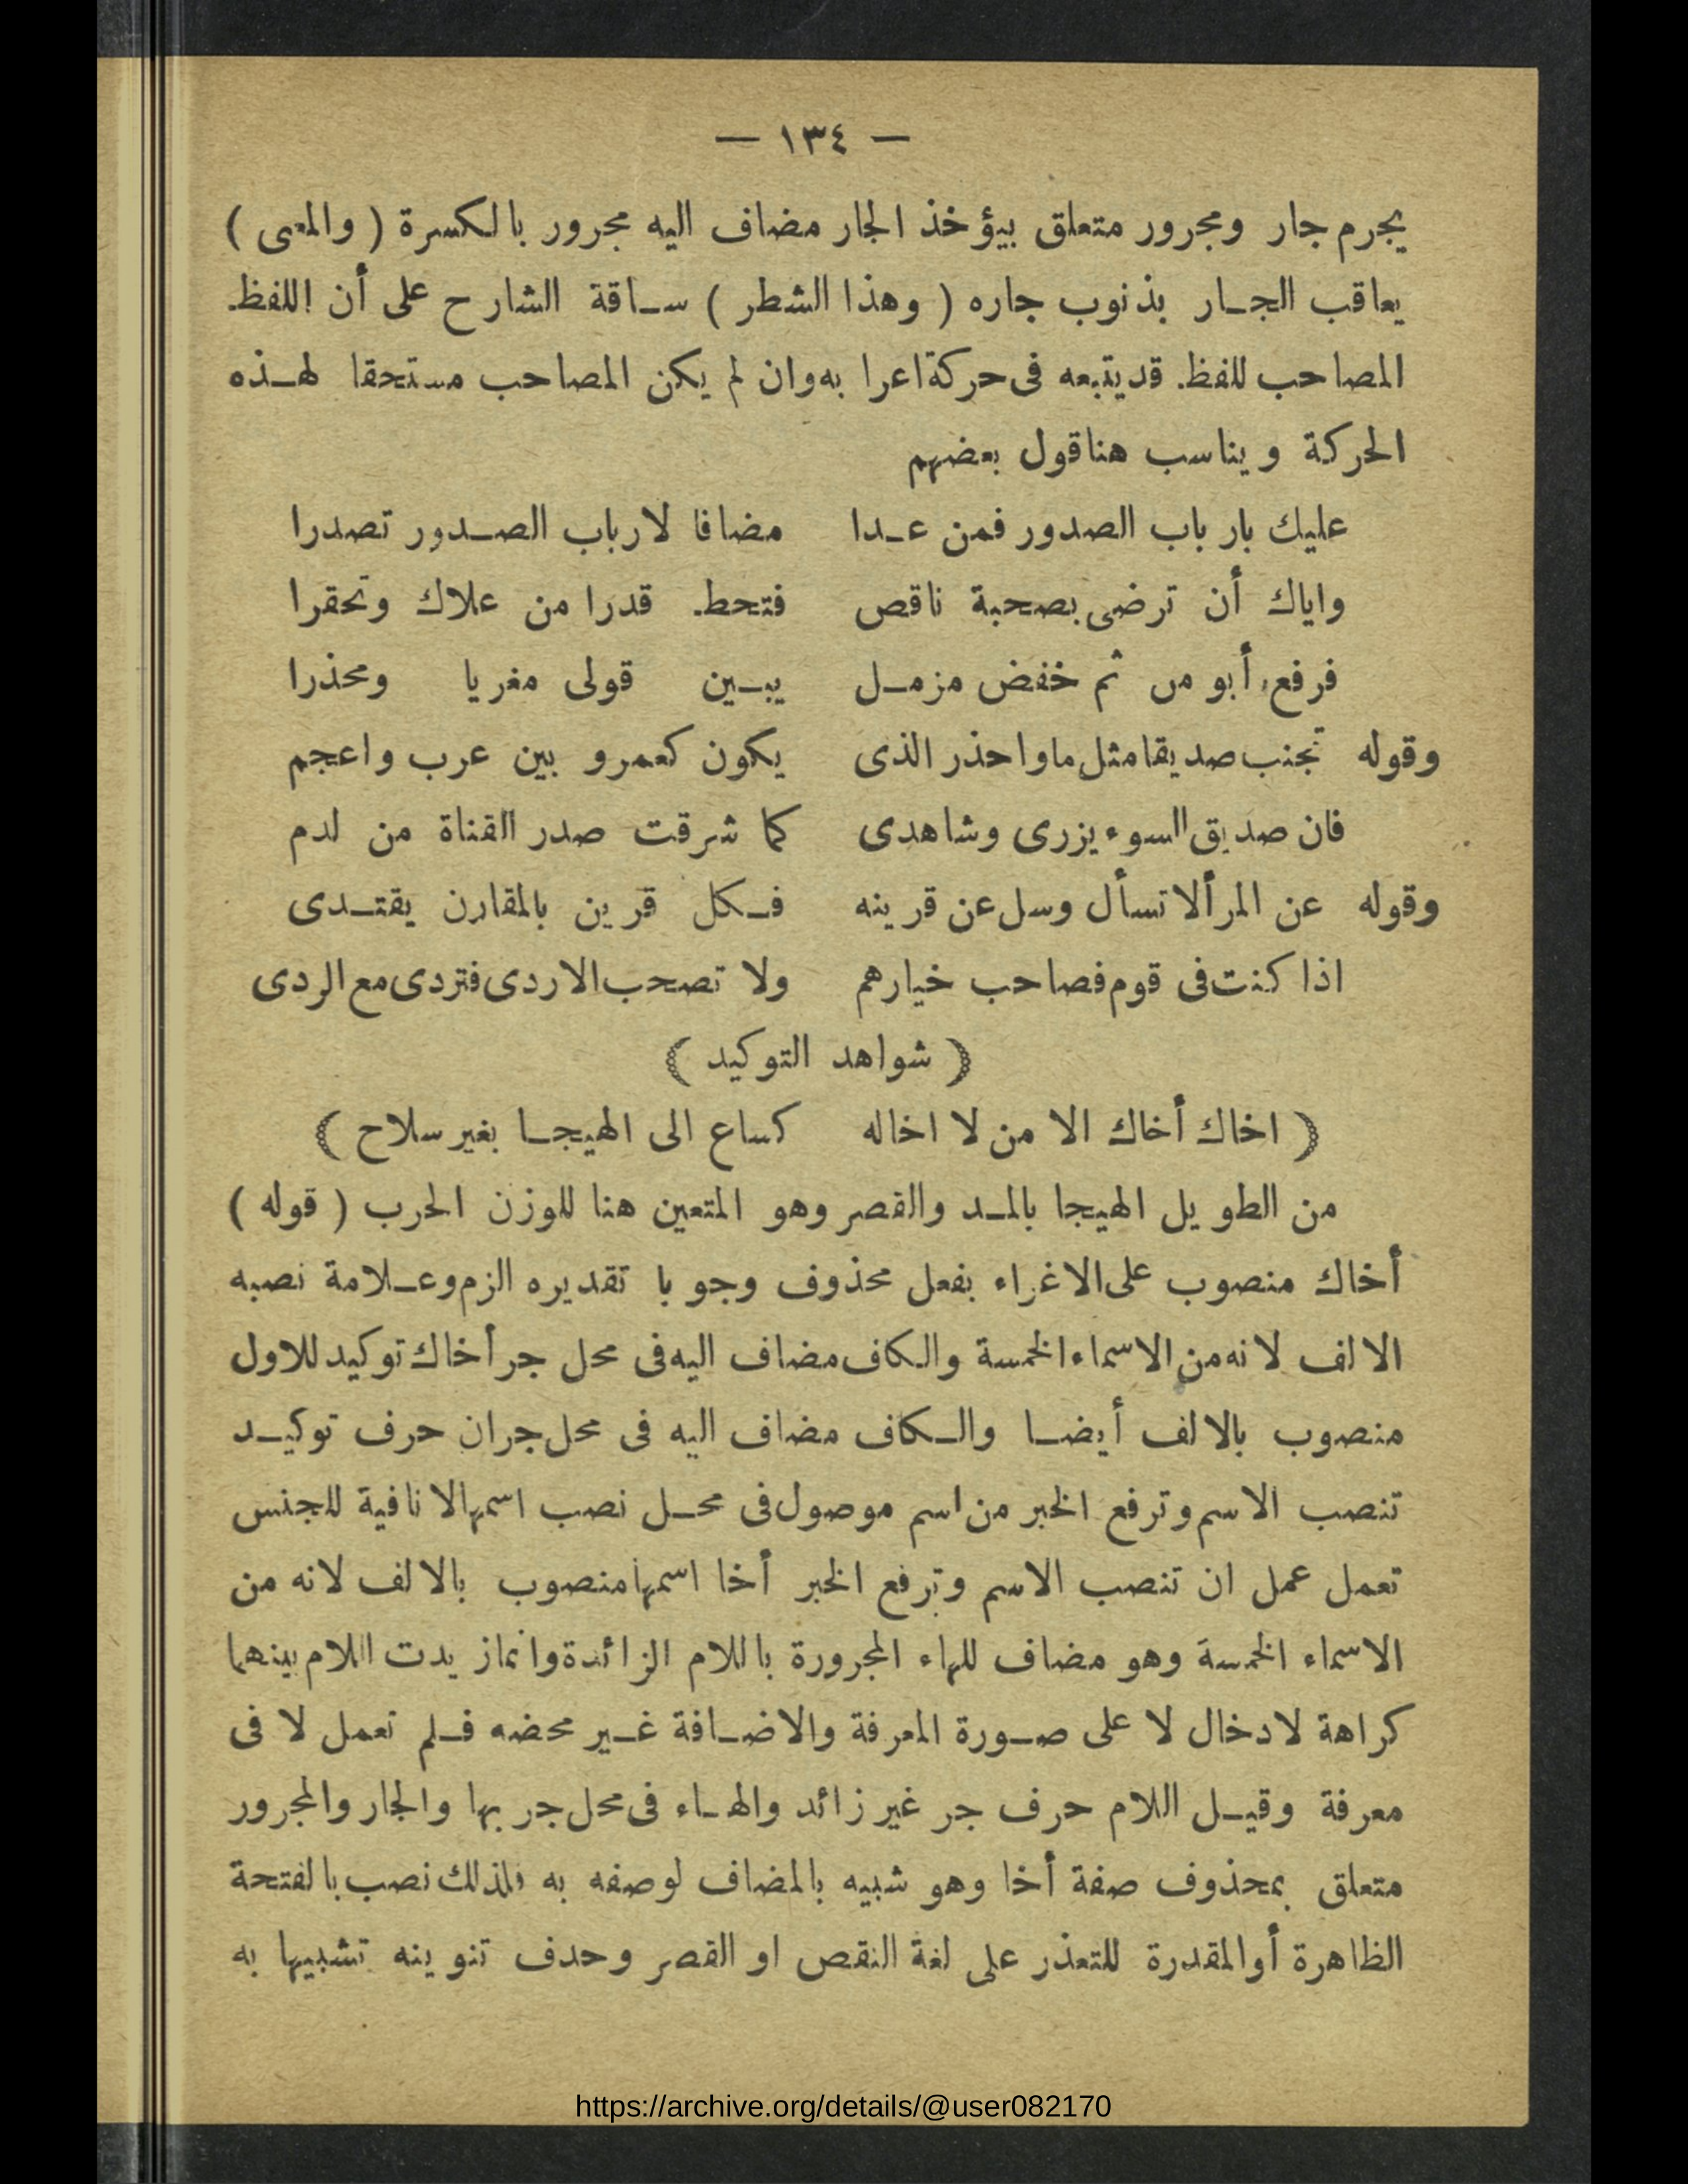 — ١٣٤ —
يجرم جار ومجرور متعلق بيؤخذ الجار مضاف اليه مجرور بالكسرة ( والمعى )
يعاقب الجـار بذنوب جاره ( وهذا الشطر ) سـاقة الشارح على أن اللفظ
المصاحب للفظ قد يتبعه فى حركة اعرا به وان لم يكن المصاحب مستحقا لهـذه
الحركة ويناسب هنا قول بعضهم
عليك بار باب الصدور فمن عـدا مضافا لارباب الصـدور تصدرا
واياك أن ترضى بصحبة ناقص فتحط قدرا من علاك وتحقرا
فرفع أبو من ثم خفض مزمـل يبـين قولى مغريا ومحذرا
وقوله تجنب صديقا مثل ما واحذر الذى يكون كعمرو بين عرب واعجم
فان صديق السوء يزرى وشاهدى كما شرقت صدر القناة من لدم
وقوله عن المرألا تسأل وسل عن قرينه فـكل قرين بالمقارن يقتـدى
اذا كنت فى قوم فصاحب خيارهم ولا تصحب الاردى فتردى مع الردى
( شواهد التوكيد )
( اخاك أخاك الا من لا اخاله كساع الى الهيجـا بغير سلاح )
من الطويل الهيجا بالمـد والقصر وهو المتعين هنا للوزن الحرب ( قوله )
أخاك منصوب على الاغراء بفعل محذوف وجوبا تقديره الزم وعـلامة نصبه
الالف لانه من الاسماء الخمسة والكاف مضاف اليه فى محل جر أخاك توكيد للاول
منصوب بالالف أيضـا والـكاف مضاف اليه فى محل جران حرف توكيـد
تنصب الاسم وترفع الخبر من اسم موصول فى محـل نصب اسمهالا نافية للجنس
تعمل عمل ان تنصب الاسم وترفع الخبر أخا اسمها منصوب بالالف لانه من
الاسماء الخمسة وهو مضاف للهاء المجرورة باللام الزائدة وانماز يدت اللام بينهما
كراهة لادخال لا على صـورة المعرفة والاضـافة غـير محضه فـلم تعمل لا فى
معرفة وقيـل اللام حرف جر غير زائد والهـاء فى محل جر بها والجار والمجرور
متعلق بمحذوف صفة أخا وهو شبيه بالمضاف لوصفه به فلذلك نصب بالفتحة
الظاهرة أوالمقدرة للتعذر على لغة النقص او القصر وحدف تنوينه تشبيها به
https://archive.org/details/@user082170